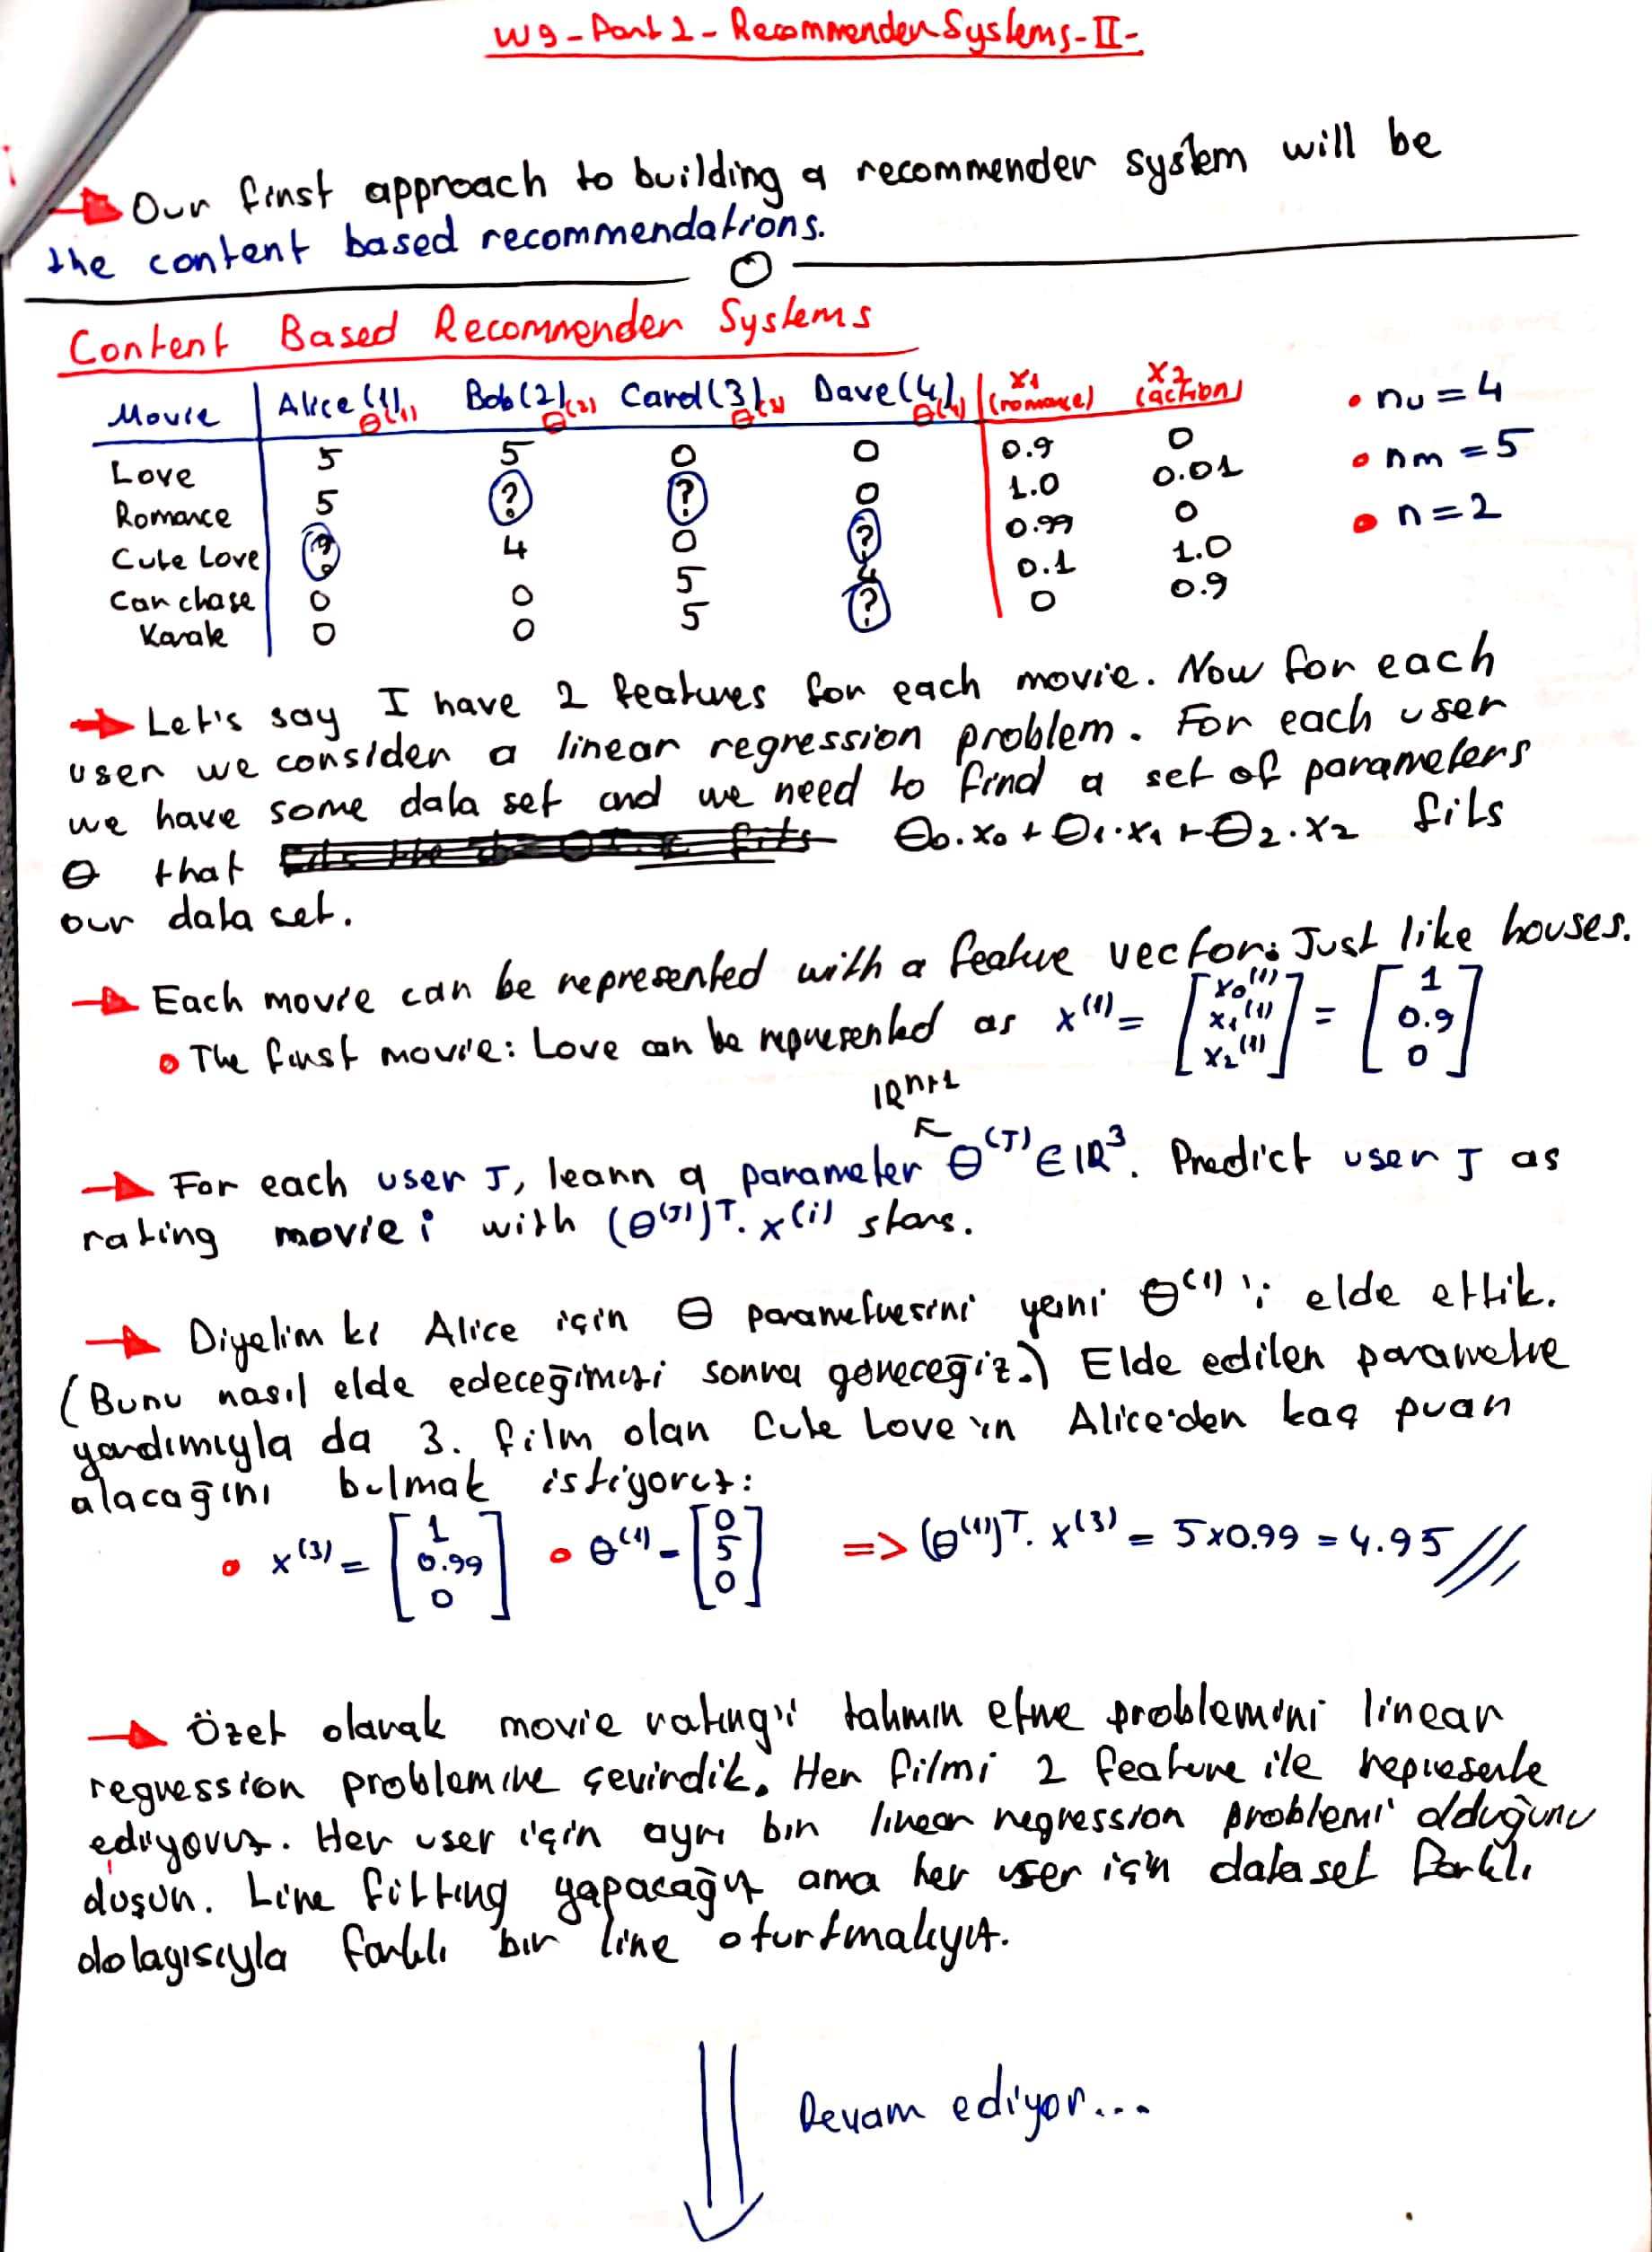 W9-Part 2-Recommender Systems-II-
Our first approach to building a recommender system will be
the content based recommendations.
Content Based Recommender Systems
Movie Alice(1) θ(1) Bob(2) θ(2) Carol(3) θ(3) Dave(4) θ(4) x1 (romance) x2 (action) • nu = 4
Love 5 5 0 0 0.9 0 • nm = 5
Romance 5 ? ? 0 1.0 0.01 • n = 2
Cute Love ? 4 0 ? 0.99 0
Car chase 0 0 5 4 0.1 1.0
Karate 0 0 5 ? 0 0.9
→ Let's say I have 2 features for each movie. Now for each
user we consider a linear regression problem. For each user
we have some data set and we need to find a set of parameters
θ that θ0.x0 + θ1.x1 + θ2.x2 fits
our data set.
→ Each movie can be represented with a feature vector. Just like houses.
• The first movie: Love can be represented as x(1) = [x0(1) x1(1) x2(1)] = [1 0.9 0]
IRn+1
→ For each user J, learn a parameter θ(J) ∈ IR3. Predict user J as
rating movie i with (θ(J))T. x(i) stars.
→ Diyelim ki Alice için θ parametresini yani θ(1)'i elde ettik.
(Bunu nasıl elde edeceğimizi sonra göreceğiz.) Elde edilen parametre
yardımıyla da 3. film olan Cute Love'ın Alice'den kaç puan
alacağını bulmak istiyoruz:
• x(3) = [1 0.99 0] • θ(1) = [0 5 0] => (θ(1))T. x(3) = 5x0.99 = 4.95
→ Özet olarak movie rating'i tahmin etme problemini linear
regression problemine çevirdik. Her filmi 2 feature ile represente
ediyoruz. Her user için ayrı bir linear regression problemi olduğunu
düşün. Line fitting yapacağız ama her user için dataset farklı
dolayısıyla farklı bir line oturtmalıyız.
Devam ediyor...